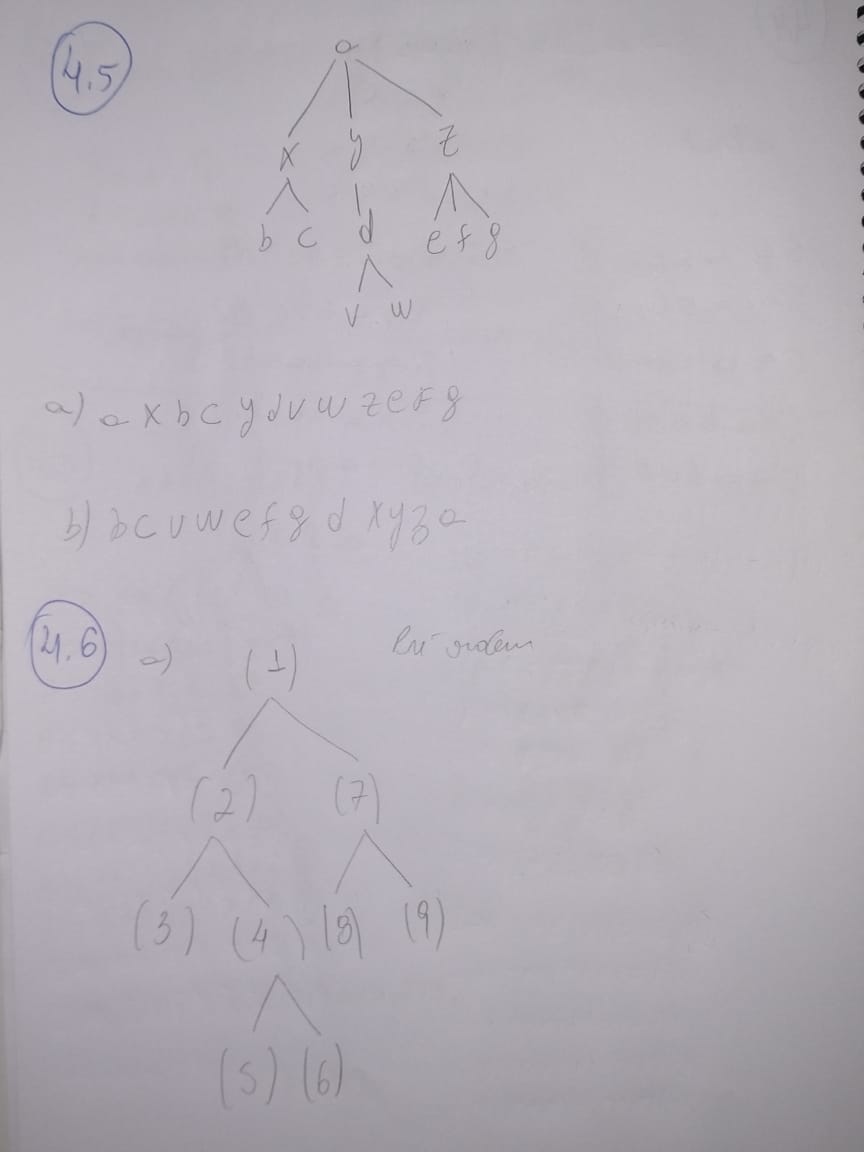 4.5
a
x y z
b c d e f g
v w
a) a x b c y d v w z e f g
b) b c v w e f g d x y z a
4.6 a) (1) Pré-ordem
(2) (7)
(3) (4) (8) (9)
(5) (6)